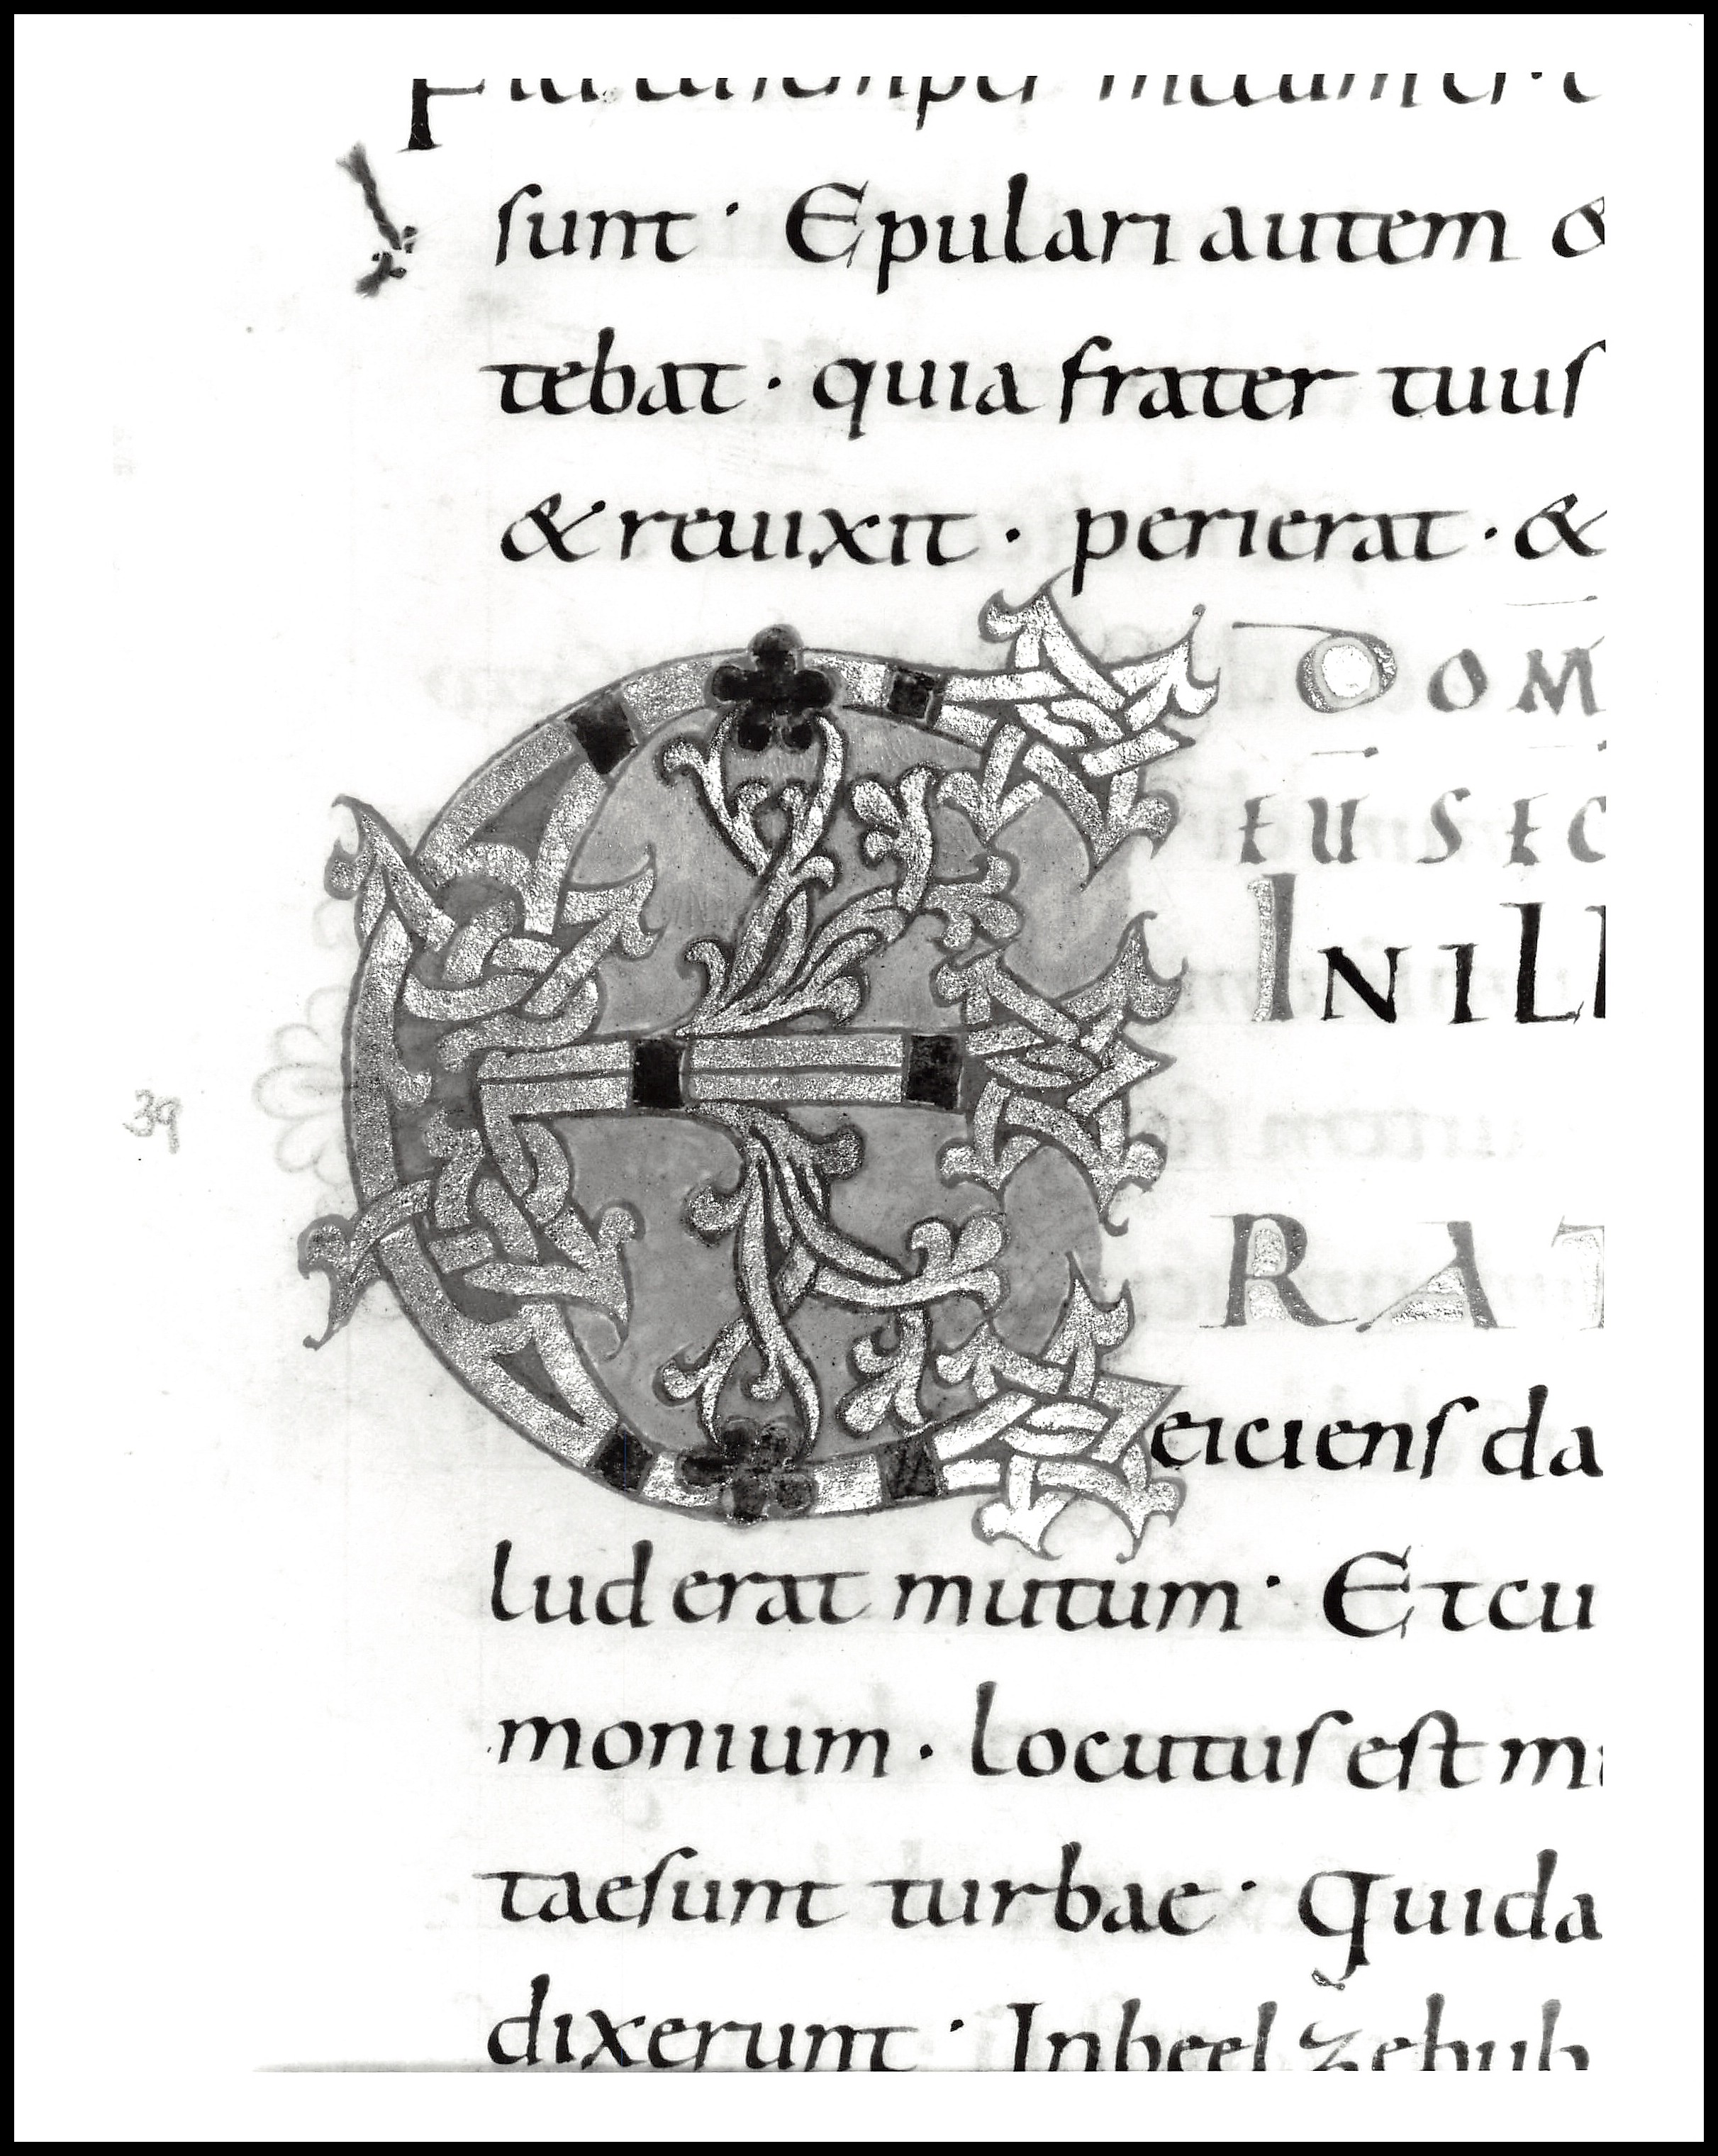 sunt · Epulari autem &
tebat · quia frater tuus
& reuixit · perierat · &
DOM
EUSEC
IN ILL
39
E RAT
eiciens da
lud erat mutum · Et cu
monium · locutus est m
tae sunt turbae · Quida
dixerunt · In beelzebub